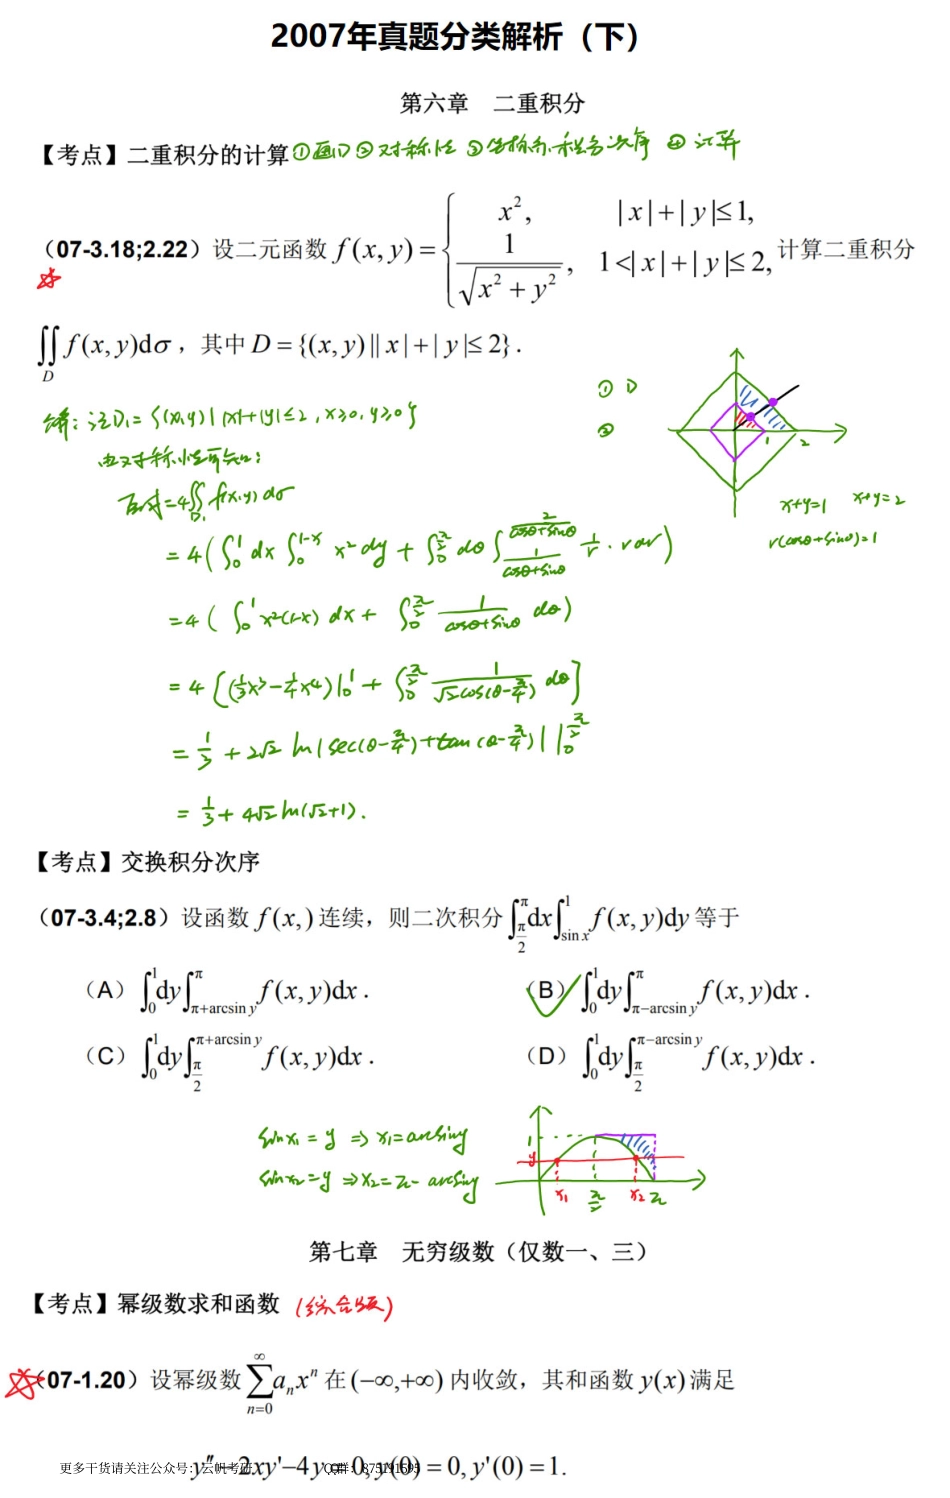 2007年真题分类解析（下）
第六章 二重积分
【考点】二重积分的计算 ①画D ②对称性 ③坐标系、积分次序 ④计算
（07-3.18;2.22）设二元函数 f(x, y) = { x², |x|+|y|≤1, 1/√(x²+y²), 1<|x|+|y|≤2, 计算二重积分
∬_D f(x, y)dσ，其中 D = {(x, y)||x|+|y|≤2}.
① D
②
1 2
x+y=1 x+y=2
r(cosθ+sinθ)=1
解：记D₁={(x,y)| |x|+|y|≤2, x≥0, y≥0}
由对称性可知：
原式=4∬_D₁ f(x,y)dσ
=4(∫₀¹ dx ∫₀^(1-x) x² dy + ∫₀^(π/2) dθ ∫_(1/(cosθ+sinθ))^(2/(cosθ+sinθ)) 1/r · r dr)
=4(∫₀¹ x²(1-x) dx + ∫₀^(π/2) 1/(cosθ+sinθ) dθ)
=4[(1/3 x³ - 1/4 x⁴)|₀¹ + ∫₀^(π/2) 1/(√2cos(θ-π/4)) dθ]
= 1/3 + 2√2 ln|sec(θ-π/4)+tan(θ-π/4)| |₀^(π/2)
= 1/3 + 4√2 ln(√2+1).
【考点】交换积分次序
（07-3.4;2.8）设函数 f(x,) 连续，则二次积分 ∫_(π/2)^π dx ∫_(sin x)^1 f(x, y)dy 等于
（A）∫₀¹ dy ∫_(π+arcsin y)^π f(x, y)dx . （B）∫₀¹ dy ∫_(π−arcsin y)^π f(x, y)dx .
（C）∫₀¹ dy ∫_(π/2)^(π+arcsin y) f(x, y)dx . （D）∫₀¹ dy ∫_(π/2)^(π−arcsin y) f(x, y)dx .
sinx₁ = y ⇒ x₁=arcsiny
sinx₂=y ⇒ x₂=π-arcsiny
1 y x₁ π/2 x₂ π
第七章 无穷级数（仅数一、三）
【考点】幂级数求和函数 (综合题)
（07-1.20）设幂级数 ∑_(n=0)^∞ aₙxⁿ 在 (−∞,+∞) 内收敛，其和函数 y(x) 满足
y″−2xy′−4y=0, y(0) = 0, y′(0) = 1.
更多干货请关注公众号：云帆考研